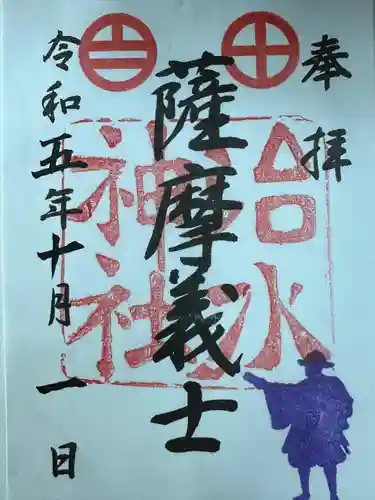 奉拝
薩摩義士
治水神社
令和五年十月一日